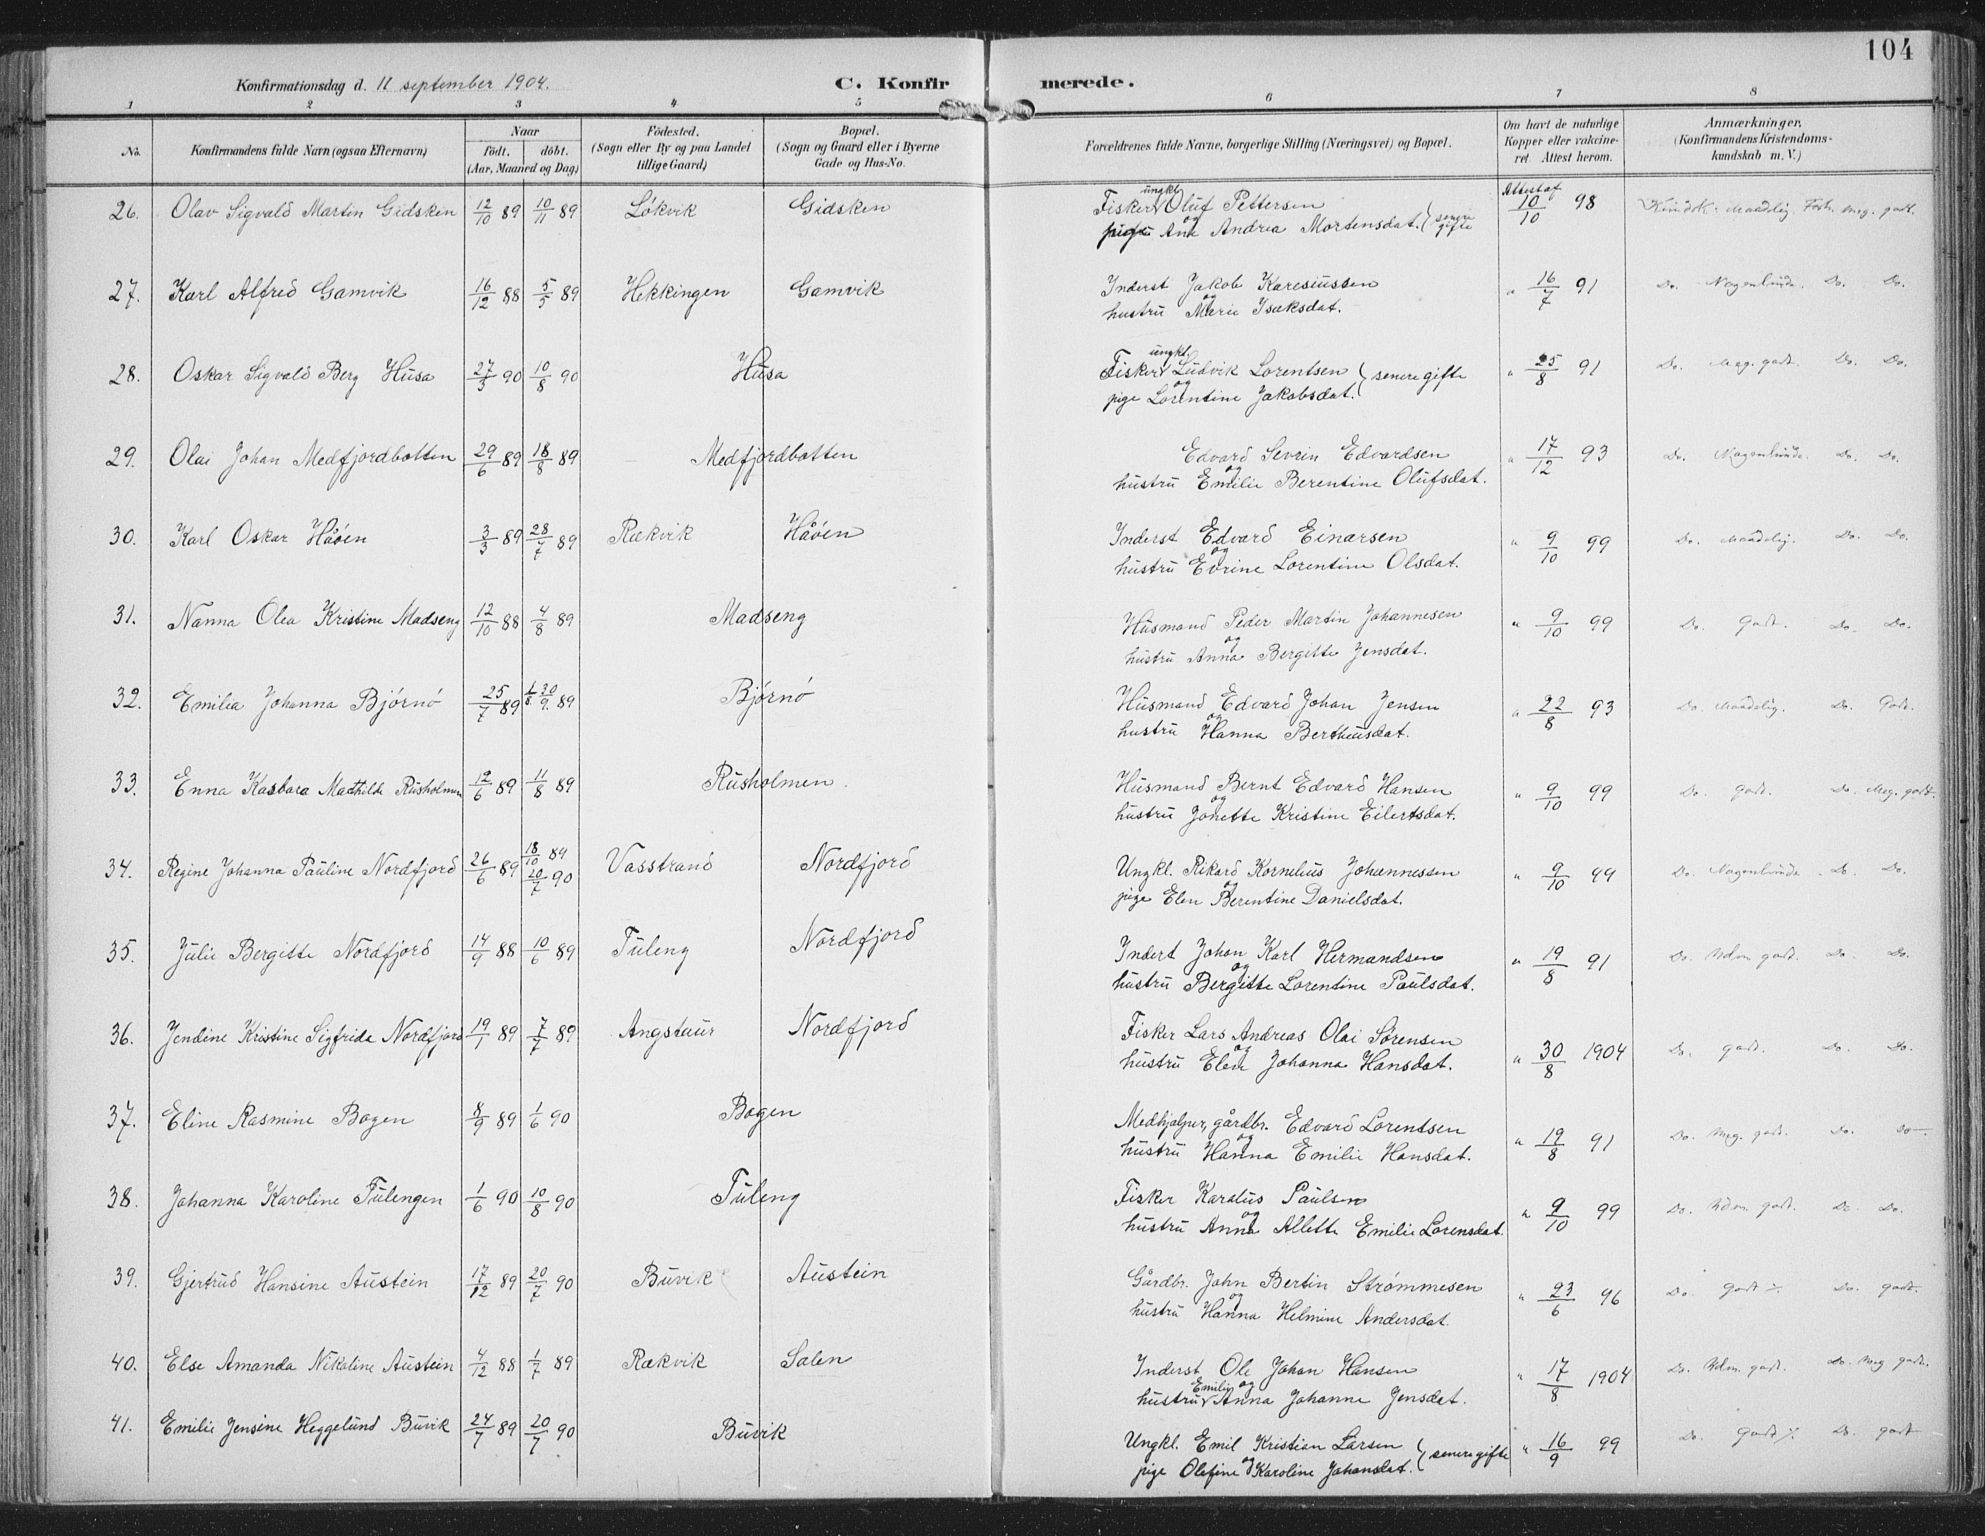 104
Konfirmationsdag d. 11 september 1904.
C. Konfir merede.
1 2 3 4 5 6 7 8
No. Konfirmandens fulde Navn (ogsaa Efternavn) Naar födt. döbt. (Aar, Maaned og Dag) Födested. (Sogn eller By og paa Landet tillige Gaard) Bopæl. (Sogn og Gaard eller i Byerne Gade og Hus-No.
Forældrenes fulde Navne, borgerlige Stilling (Næringsvei) og Bopæl. Om havt de naturlige Kopper eller vakcineret Attest herom. Anmærkninger. (Konfirmandens Kristendomskundskab m. V.)
26. Olav Sigvald Martin Gidsken 12/10 89 10/11 89 Lökvik Gidsken
Fisker ungkl. Oluf Pettersen Attest af 10/10 98 Kundsk. Maadelig Forh. meg. godt.
og Ane Andrea Mortensdat. senere gifte
27. Karl Alfred Gamvik 16/12 88 5/5 89 Hekkingen Gamvik
Inderst Jakob Karesiussen " 16/7 91 Do. Nogenlunde. Do. Do.
og hustru Marie Isaksdat.
28. Oskar Sigvald Berg Husa 27/3 90 10/8 90 Husa
Fisker ungkl. Ludvik Lorentsen " 25/8 91 Do. Meg. godt. Do. Do.
og pige Lorentine Jakobsdat. senere gifte
29. Olai Johan Medfjordbotten 29/6 89 18/8 89 Medfjordbotten
Edvard Sevrin Edvardsen " 17/12 93 Do. Nogenlunde. Do. Do.
og hustru Emilie Berentine Olufsdat.
30. Karl Oskar Håöen 3/3 89 28/7 89 Rækvik Håöen
Inderst Edvard Einarsen " 9/10 99 Do. Maadelig. Do. Do.
og hustru Evrine Lorentine Olsdat.
31. Nanna Olea Kristine Madseng 12/10 88 4/8 89 Madseng
Husmand Peder Martin Johannesen " 9/10 99 Do. Godt. Do. Do.
og hustru Anna Bergitte Jensdat.
32. Emilia Johanna Björnö 25/7 89 1/8 30/9 89 Björnö
Husmand Edvard Johan Jensen " 22/8 93 Do. Maadelig. Do. Godt.
og hustru Hanna Bertheusdat.
33. Enna Kasbara Mathilde Rusholmen 12/6 89 11/8 89 Rusholmen.
Husmand Bernt Edvard Hansen " 9/10 99 Do. godt. Do. Meg. godt.
og hustru Jonette Kristine Eilertsdat.
34. Regine Johanna Pauline Nordfjord 26/6 89 18/10 89 20/7 90 Vasstrand Nordfjord
Ungkl. Rikard Kornelius Johannessen " 9/10 99 Do. Nogenlunde. Do. Do.
og pige Elen Berentine Danielsdat.
35. Julie Bergitte Nordfjord 14/9 88 10/6 89 Tuleng Nordfjord
Indert Johan Karl Hermandsen " 19/8 91 Do. Udm. godt. Do. Do.
og hustru Bergitte Lorentine Paulsdat.
36. Jendine Kristine Sigfrida Nordfjord 19/1 89 7/7 89 Angstaur Nordfjord
Fisker Lars Andreas Olai Sørensen " 30/8 1904 Do. godt. Do. Do.
og hustru Elen Johanna Hansdat.
37. Eline Rasmine Bogen 8/9 89 1/6 90 Bogen
Medhjelper, gårdbr. Edvard Lorentsen " 19/8 91 Do. Meg. godt. Do. do.
og hustru Hanna Emilie Hansdat.
38. Johanna Karoline Tulengen 1/6 90 10/8 90 Tuleng
Fisker Karolus Paulsen " 9/10 99 Do. Udm. godt. Do. Do.
og hustru Anna Allette Emilie Lorensdat.
39. Gjertrud Hansine Austein 17/12 89 20/7 90 Buvik Austein
Gårdbr. John Bertin Strømmesen " 23/6 96 Do. Godt Do. godt.
og hustru Hanna Helmine Andersdat.
40. Else Amanda Nikoline Austein 4/12 88 1/7 89 Rækvik Salen
Inderst Ole Johan Hansen " 17/8 1904 Do. Udm. godt. Do. Meg godt.
og hustru Emilie Anna Johanne Jensdat.
41. Emilie Jensine Heggelund Buvik 24/7 89 20/7 90 Buvik
Ungkl. Emil Kristian Larsen " 16/9 99 Do. Godt Do. godt
pige Olefine og Karoline Johansdat. senere gifte